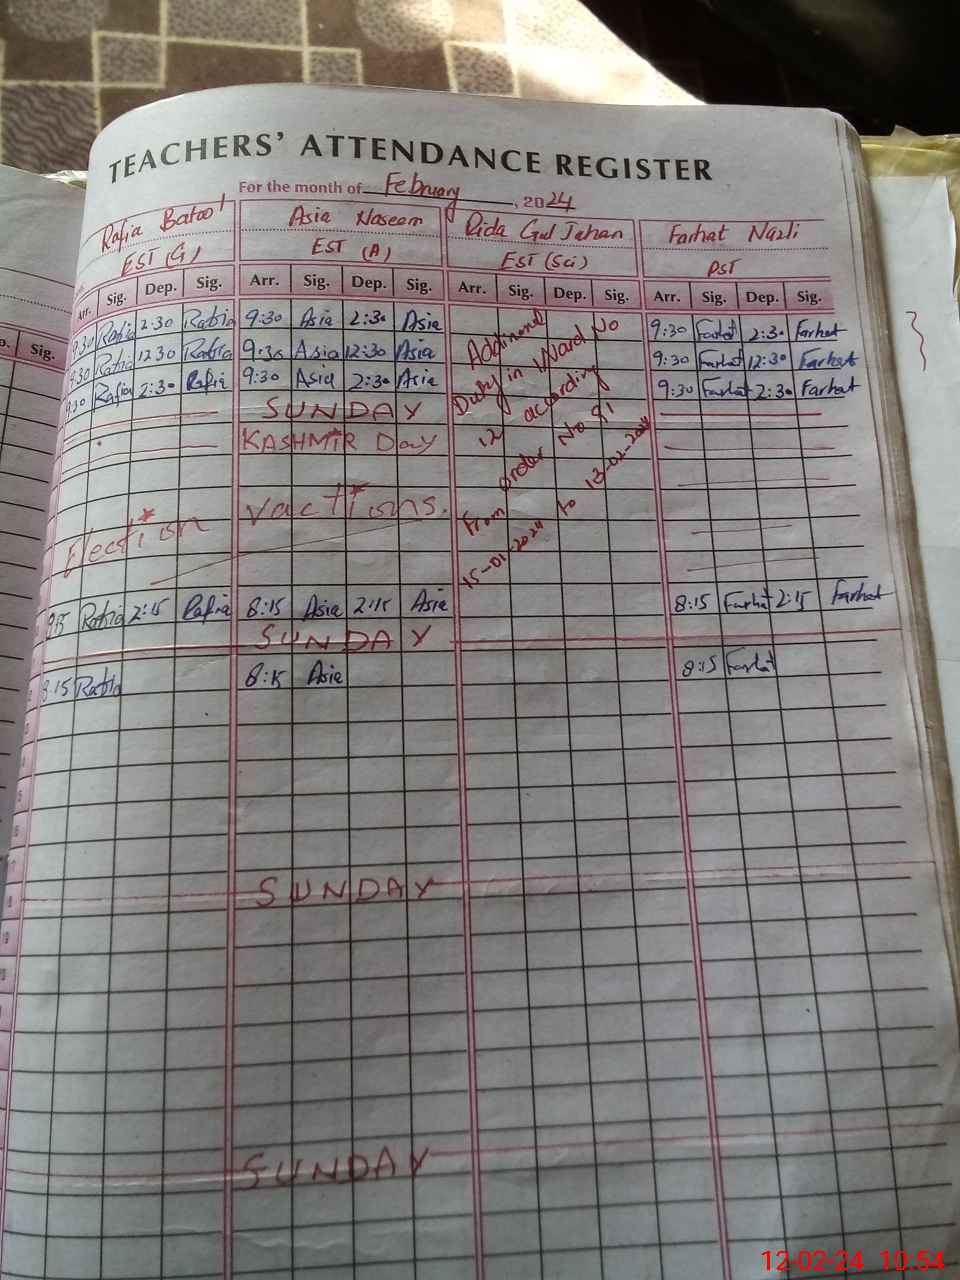 TEACHERS' ATTENDANCE REGISTER
For the month of February, 2024
Rafia Batool Asia Naseem Rida Gul Jahan Farhat Nazli
EST (G) EST (A) EST (Sci) PST
Arr. Sig. Dep. Sig. Arr. Sig. Dep. Sig. Arr. Sig. Dep. Sig. Arr. Sig. Dep. Sig.
9:30 Rafia 2:30 Rafia 9:30 Asia 2:30 Asia 9:30 Farhat 2:30 Farhat
9:30 Rafia 12:30 Rafia 9:30 Asia 12:30 Asia 9:30 Farhat 12:30 Farhat
9:30 Rafia 2:30 Rafia 9:30 Asia 2:30 Asia 9:30 Farhat 2:30 Farhat
Additional
Duty in Ward No
12 according
order No 91
From
15-01-2024 to 13-02-2024
SUNDAY
KASHMIR Day
Election vactions.
Rafia 2:15 Rafia 8:15 Asia 2:15 Asia 8:15 Farhat 2:15 Farhat
SUNDAY
8:15 Rafia 8:15 Asia 8:15 Farhat
SUNDAY
SUNDAY
Sig.
12-02-24 10:54